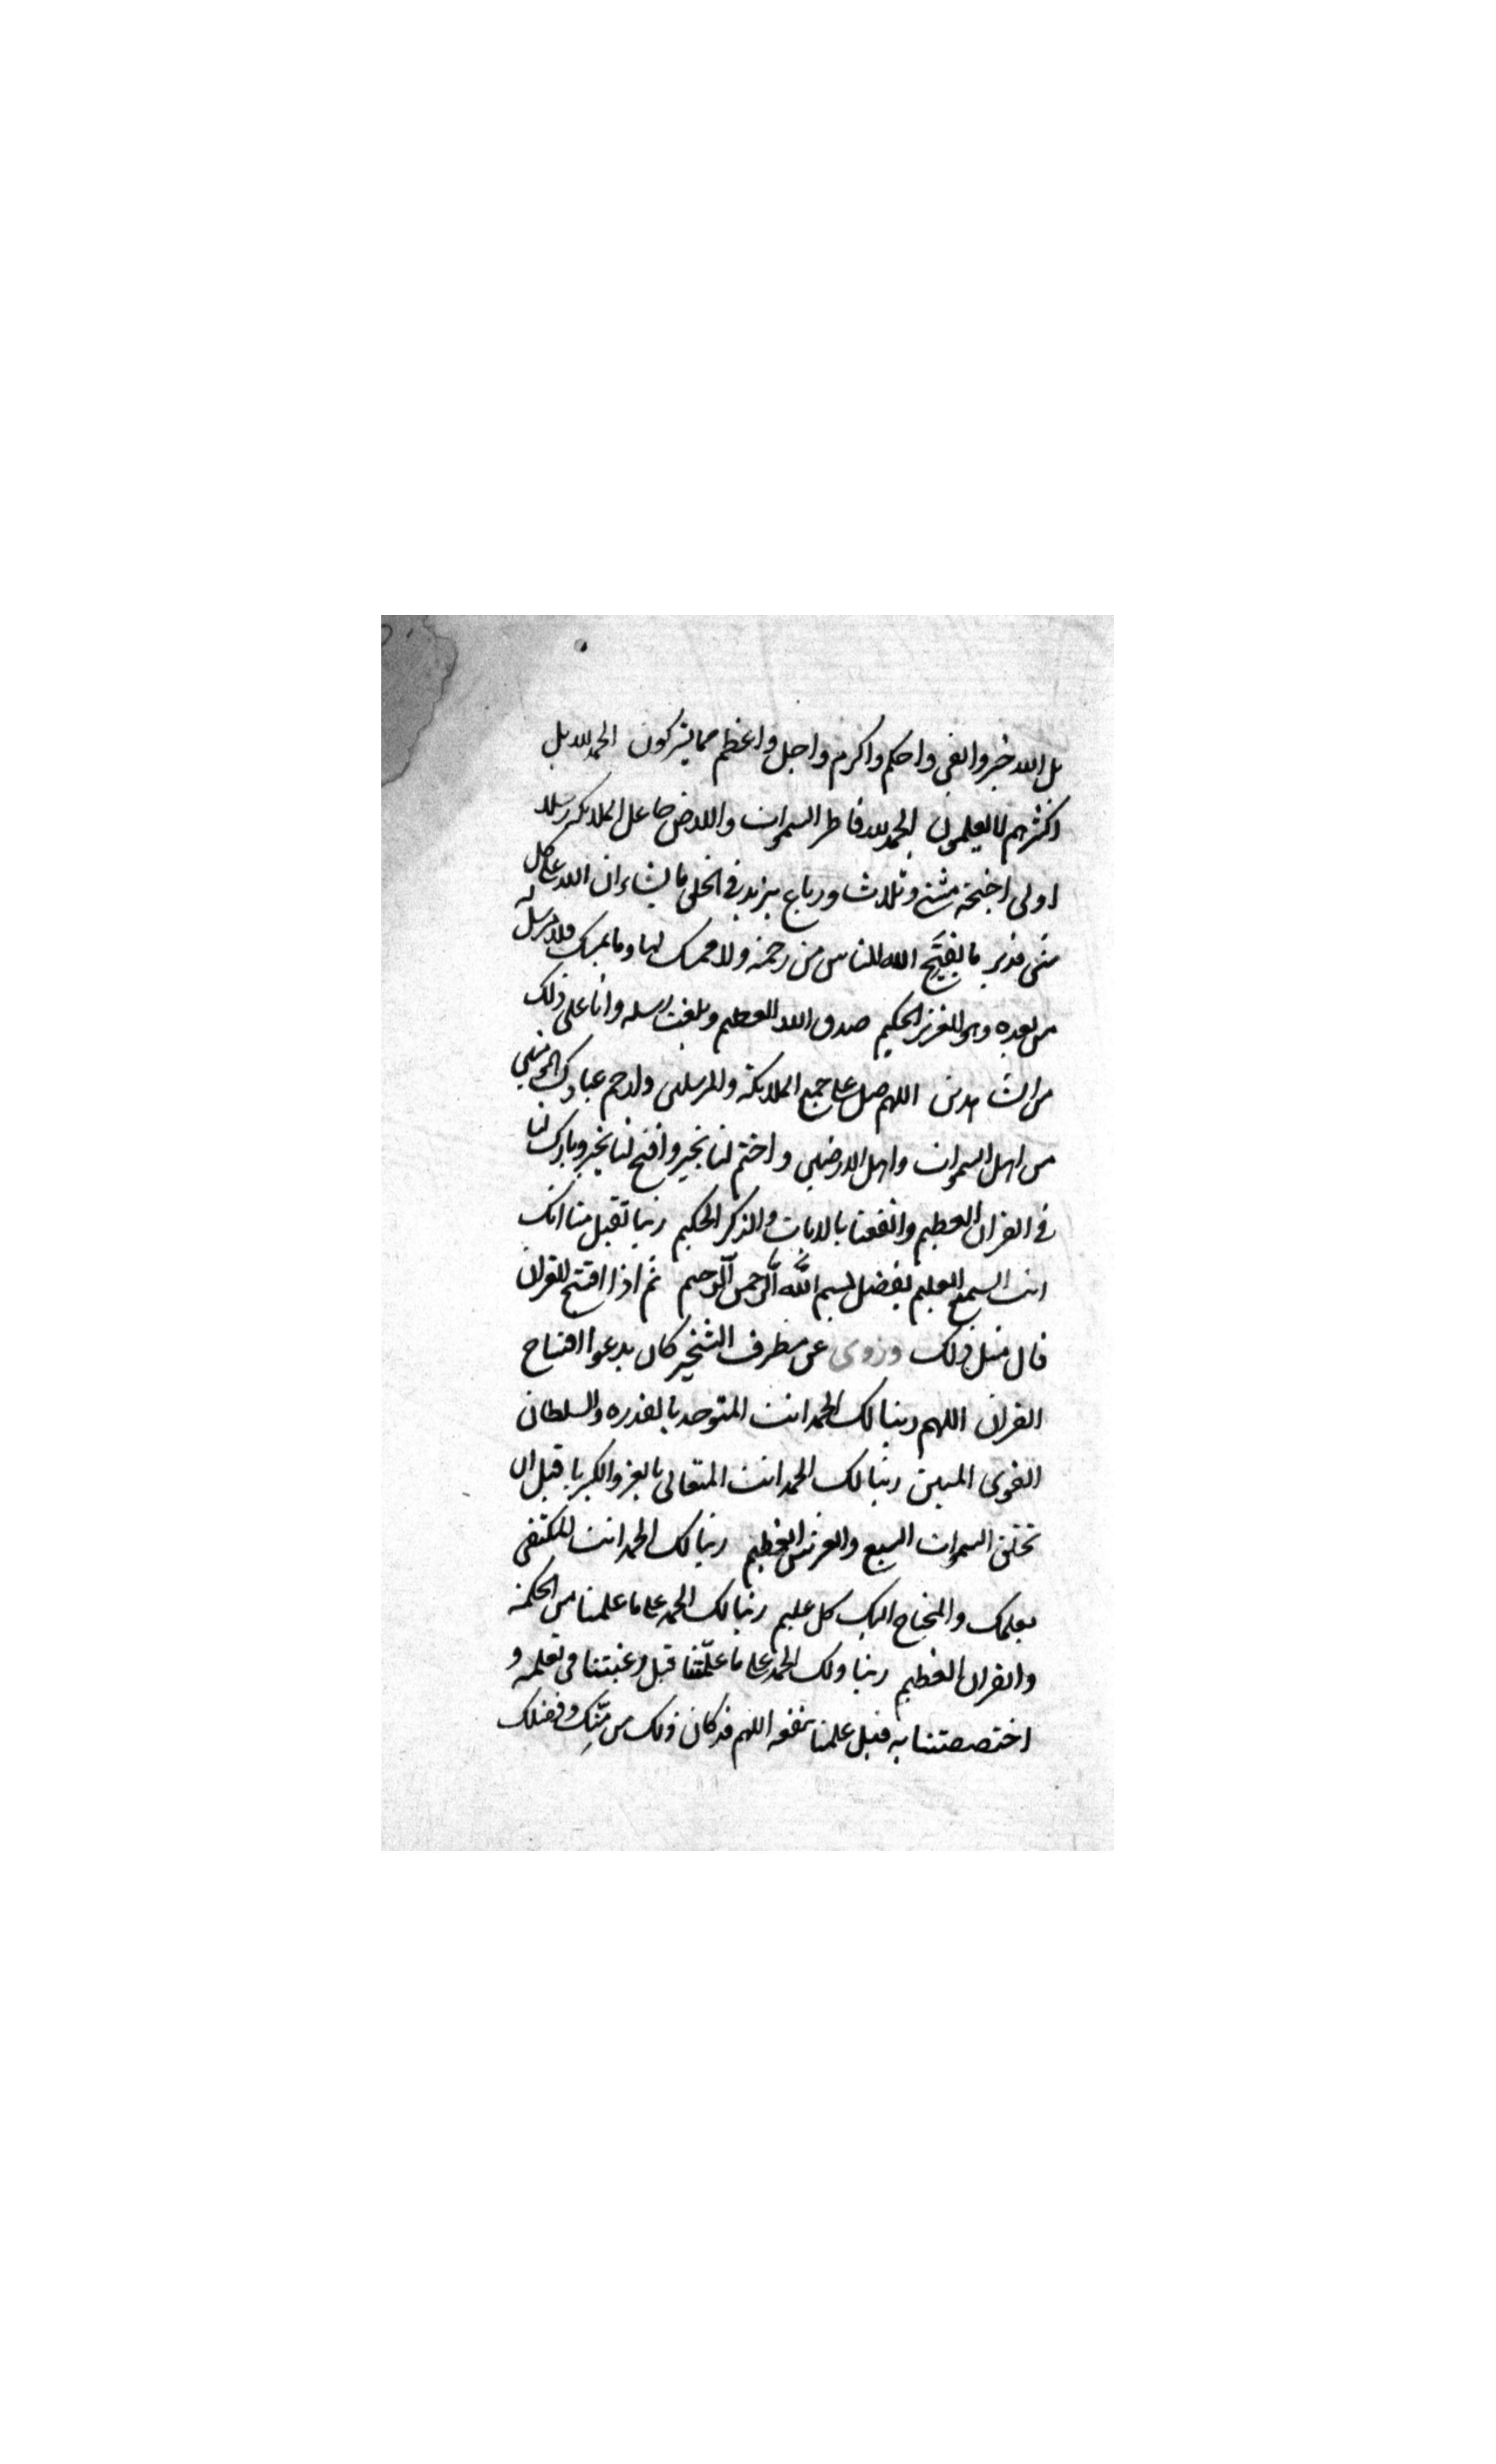 بل الله خير وابقى واحكم واكرم واجل واعظم مما يشركون الحمد لله بل
اكثرهم لا يعلمون الحمد لله فاطر السموات والارض جاعل الملائكة رسلا
اولى اجنحة مثنى وثلاث ورباع يزيد في الخلق ما يشاء ان الله على كل
شى قدير ما يفتح الله للناس من رحمة ولا ممسك لها وما يمسك فلا مرسل له
من بعده وهو العزيز الحكيم صدق الله العظيم وبلغت رسله وانا على ذلك
من الشاهدين اللهم صل على جميع الملائكة والمرسلين وارحم عبادك المومنين
من اهل السموات واهل الارضين واختم لنا بخير وافتح لنا بخير وبارك لنا
في القران العظيم وانفعنا بالايات والذكر الحكيم ربنا تقبل منا انك
انت السميع العليم بفضل بسم الله الرحمن الرحيم ثم اذا افتتح القران
قال مثل ذلك وروى عن مطرف الشخير كان يدعوا افتتاح
القران اللهم ربنا لك الحمد انت المتوحد بالقدره والسلطان
القوى المبين ربنا لك الحمد انت المتعالى بالعز والكبريا قبل ان
تخلق السموات السبع والعرش العظيم ربنا لك الحمد انت المكتفى
بعلمك والمحتاج اليك كل عليم ربنا لك الحمد على ما علمتنا من الحكمة
والقران العظيم ربنا ولك الحمد على ما علّمتنا قبل رغبتنا فى تعلمه و
اختصصتنا به قبل علمنا بنفعه اللهم قد كان ذلك من مَنِّك وفضلك